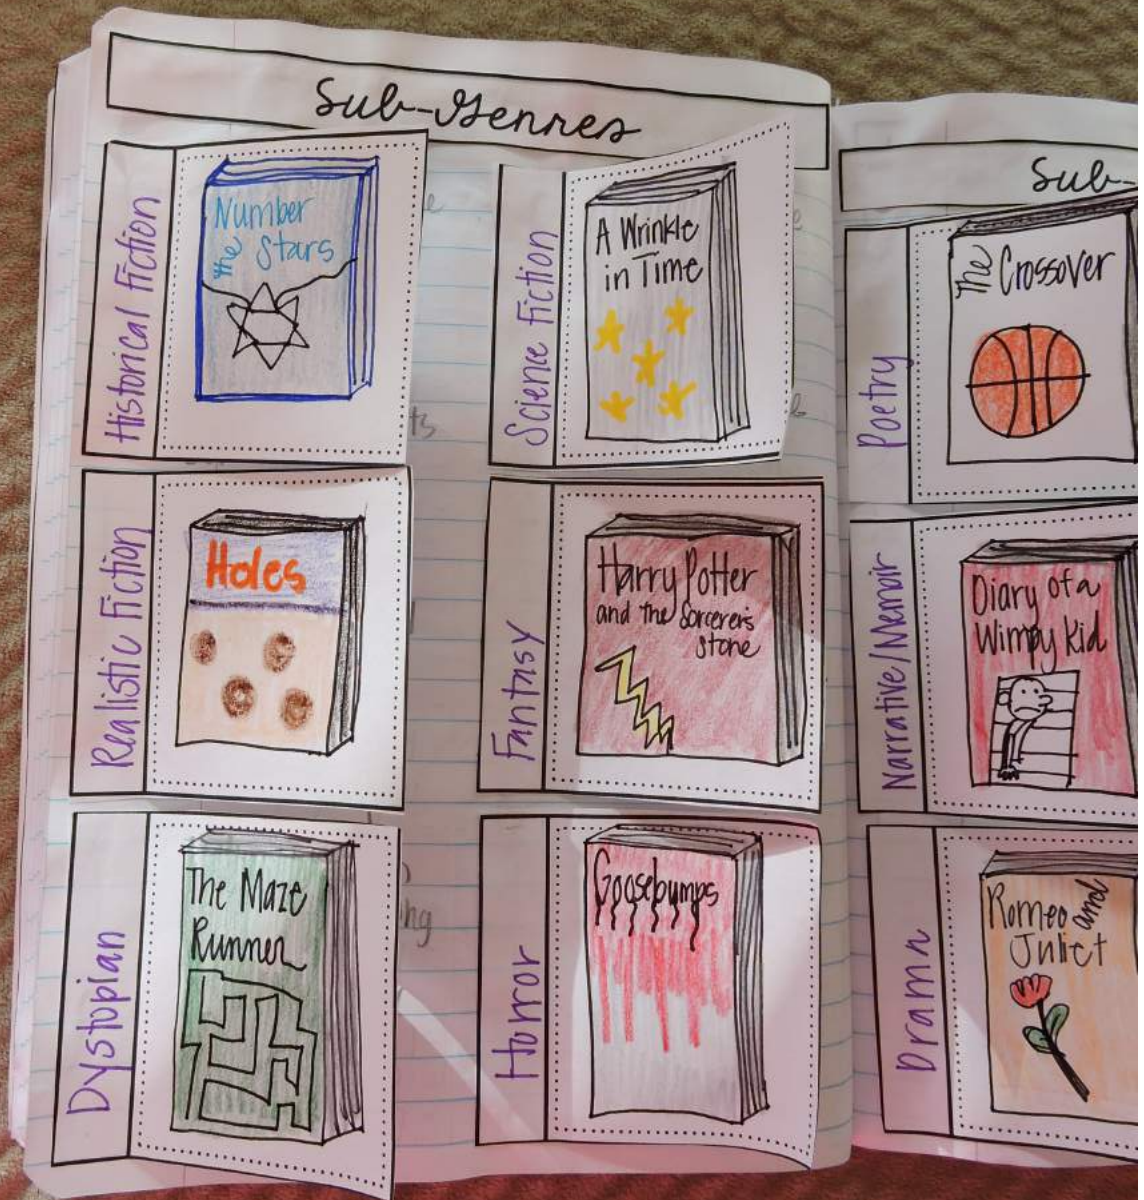 Sub-Genres
Historical Fiction
Number
the Stars
Science Fiction
A Wrinkle
in Time
Realistic Fiction
Holes
Fantasy
Harry Potter
and the Sorcerer's
Stone
Dystopian
The Maze
Runner
Horror
Goosebumps
Sub-
Poetry
The Crossover
Narrative/Memoir
Diary of a
Wimpy Kid
Drama
Romeo and
Juliet